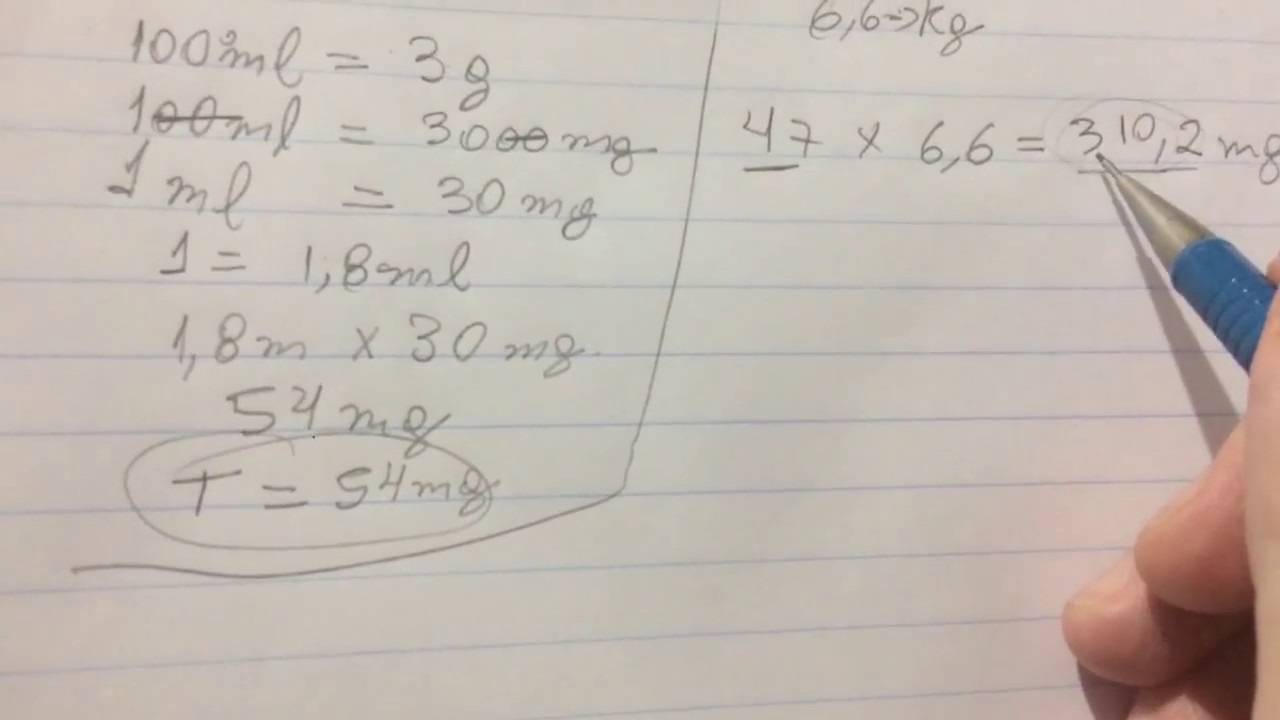 100ml = 3g
100ml = 3000mg
1 ml = 30mg
1 = 1,8ml
1,8m x 30 mg.
54 mg
T = 54mg
6,6->kg
47 x 6,6 = 310,2 mg